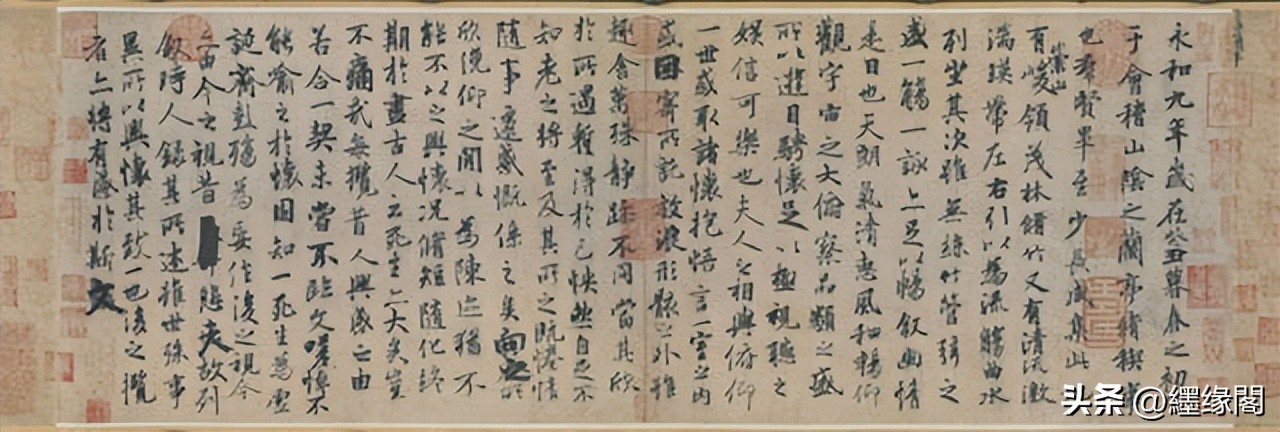 永和九年歲在癸丑暮春之初會
于會稽山陰之蘭亭脩稧事
也羣賢畢至少長咸集此地
有崇山峻領茂林脩竹又有清流激
湍暎帶左右引以為流觴曲水
列坐其次雖無絲竹管弦之
盛一觴一詠亦足以暢叙幽情
是日也天朗氣清惠風和暢仰
觀宇宙之大俯察品類之盛
所以遊目騁懷足以極視聽之
娛信可樂也夫人之相與俯仰
一世或取諸懷抱悟言一室之內
或因寄所託放浪形骸之外雖
趣舍萬殊靜躁不同當其欣
於所遇暫得於己怏然自足不
知老之將至及其所之既惓情
隨事遷感慨係之矣向之所
欣俛仰之閒以為陳迹猶不
能不以之興懷況脩短隨化終
期於盡古人云死生亦大矣豈
不痛哉每攬昔人興感之由
若合一契未嘗不臨文嗟悼不
能喻之於懷固知一死生為虛
誕齊彭殤為妄作後之視今
亦由今之視昔悲夫故列
叙時人錄其所述雖世殊事
異所以興懷其致一也後之攬
者亦將有感於斯文
头条@纆缘閣